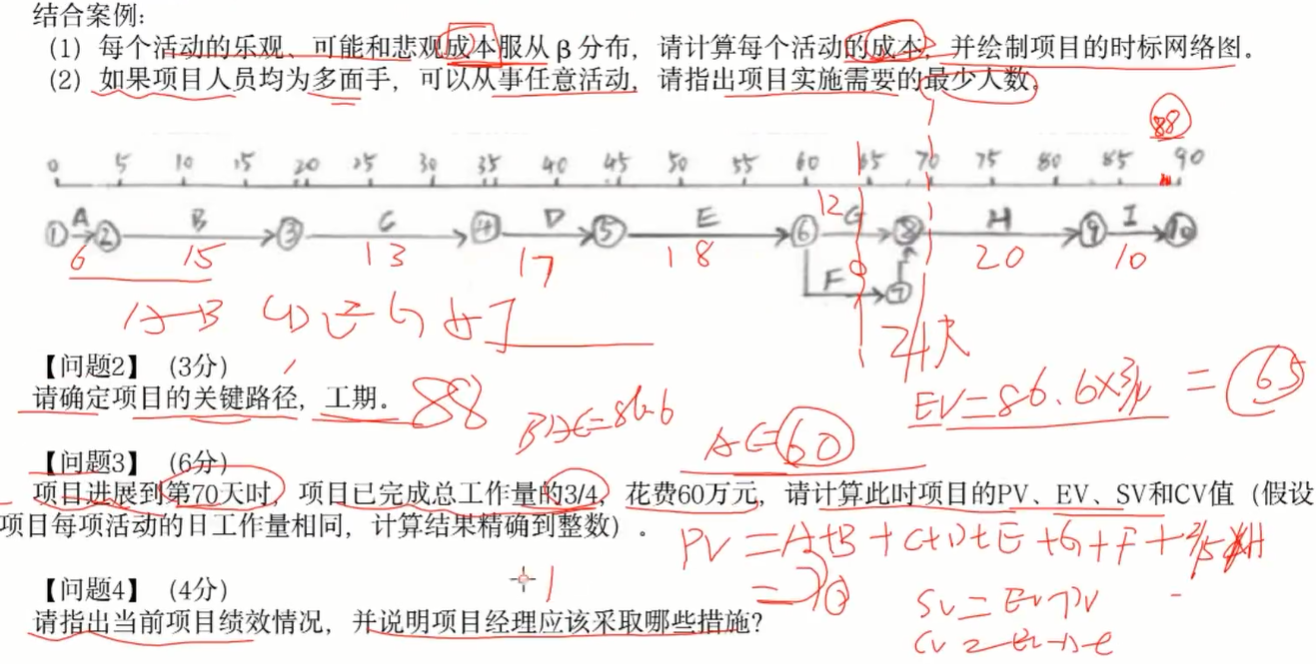 结合案例:
(1) 每个活动的乐观、可能和悲观成本服从 β 分布，请计算每个活动的成本，并绘制项目的时标网络图。
(2) 如果项目人员均为多面手，可以从事任意活动，请指出项目实施需要的最少人数。
88
0 5 10 15 20 25 30 35 40 45 50 55 60 65 70 75 80 85 90
A B C D E 12 G H I
① ② ③ ④ ⑤ ⑥ ⑧ ⑨ ⑩
6 15 13 17 18 9 20 10
F ⑦
24天
【问题2】 (3分)
请确定项目的关键路径，工期。 88
BAC=86.6
EV=86.6×3/4 = 65
AC=60
【问题3】 (6分)
项目进展到第70天时，项目已完成总工作量的3/4，花费60万元，请计算此时项目的PV、EV、SV和CV值（假设
项目每项活动的日工作量相同，计算结果精确到整数）。
PV=A+B+C+D+E+G+F+2/5 H
【问题4】 (4分)
SV=EV-PV
请指出当前项目绩效情况，并说明项目经理应该采取哪些措施?